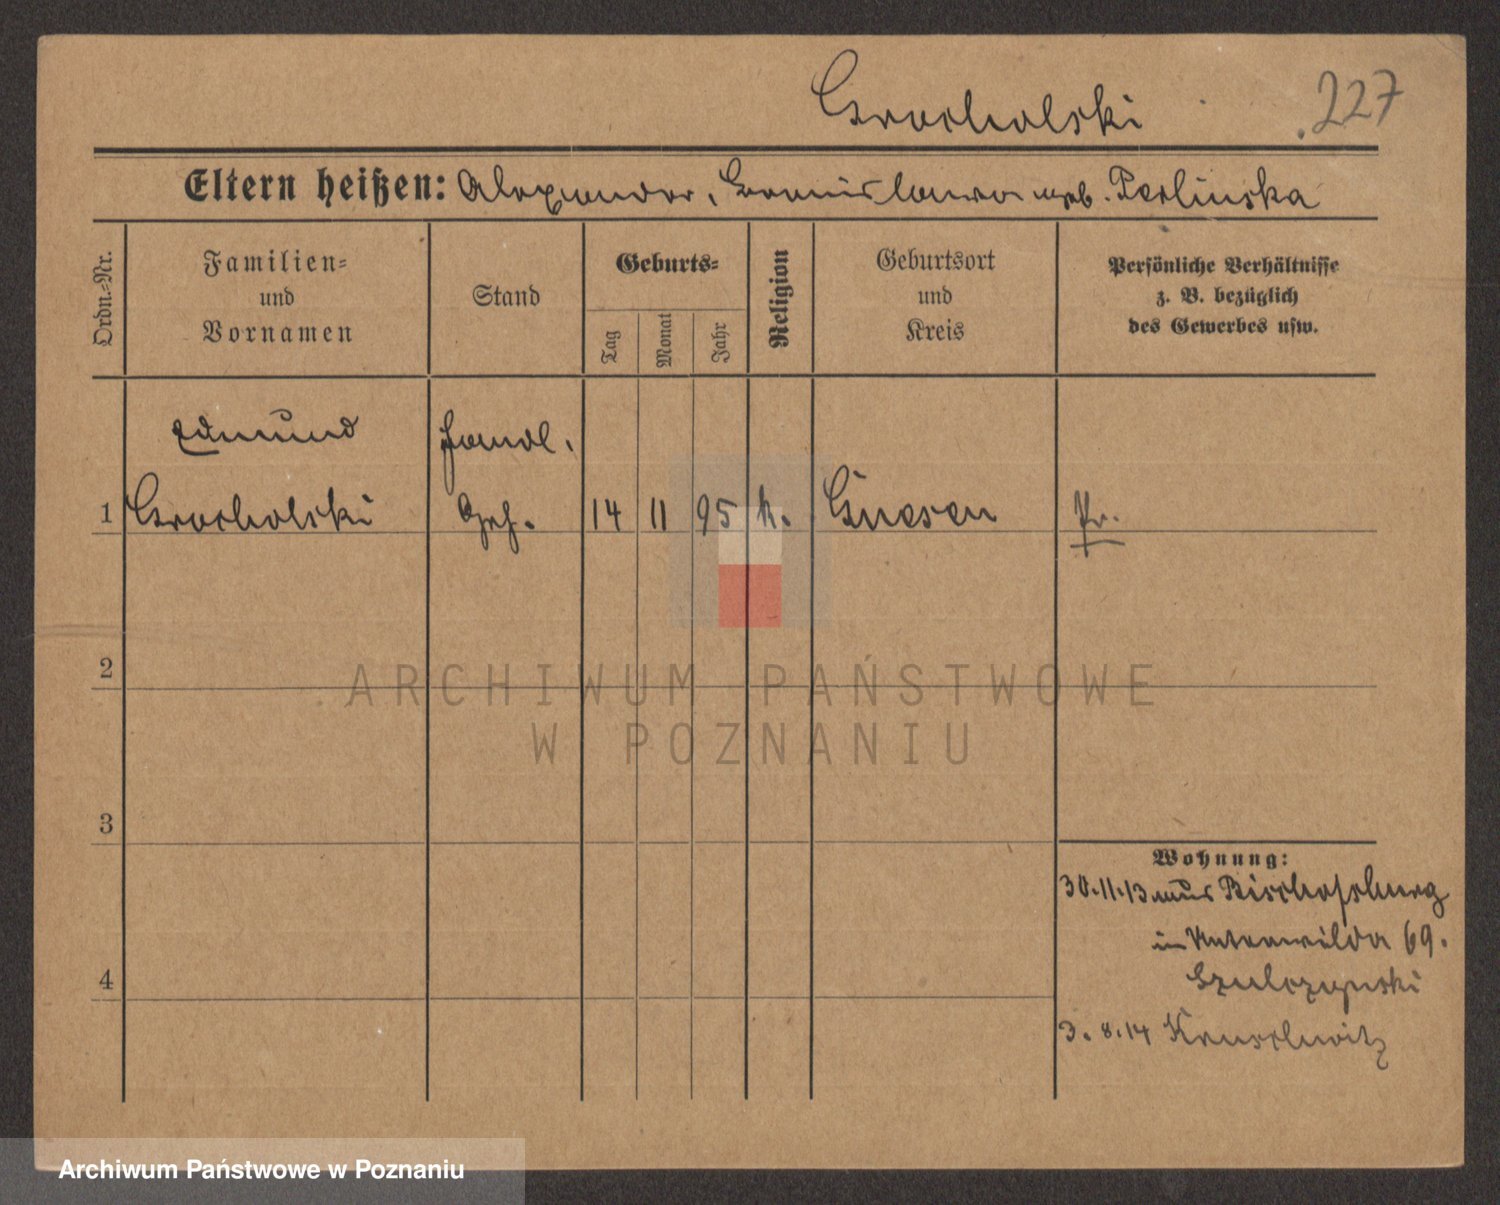 Grocholski 227
Eltern heißen: Alexander, Bronislawa geb. Perlinska
Ordn.-Nr.
Familien-
und
Vornamen
Stand
Geburts-
Tag
Monat
Jahr
Religion
Geburtsort
und
Kreis
Persönliche Verhältnisse
z. B. bezüglich
des Gewerbes usw.
Edmund Handl.
1 Grocholski Geh. 14 11 95 k. Gnesen Pr.
2
3
Wohnung:
30.11.13 aus Bischofsburg
in Unterwilda 69.
4 Szulczynski
3.8.14 Kruschwitz
ARCHIWUM PAŃSTWOWE
W POZNANIU
Archiwum Państwowe w Poznaniu